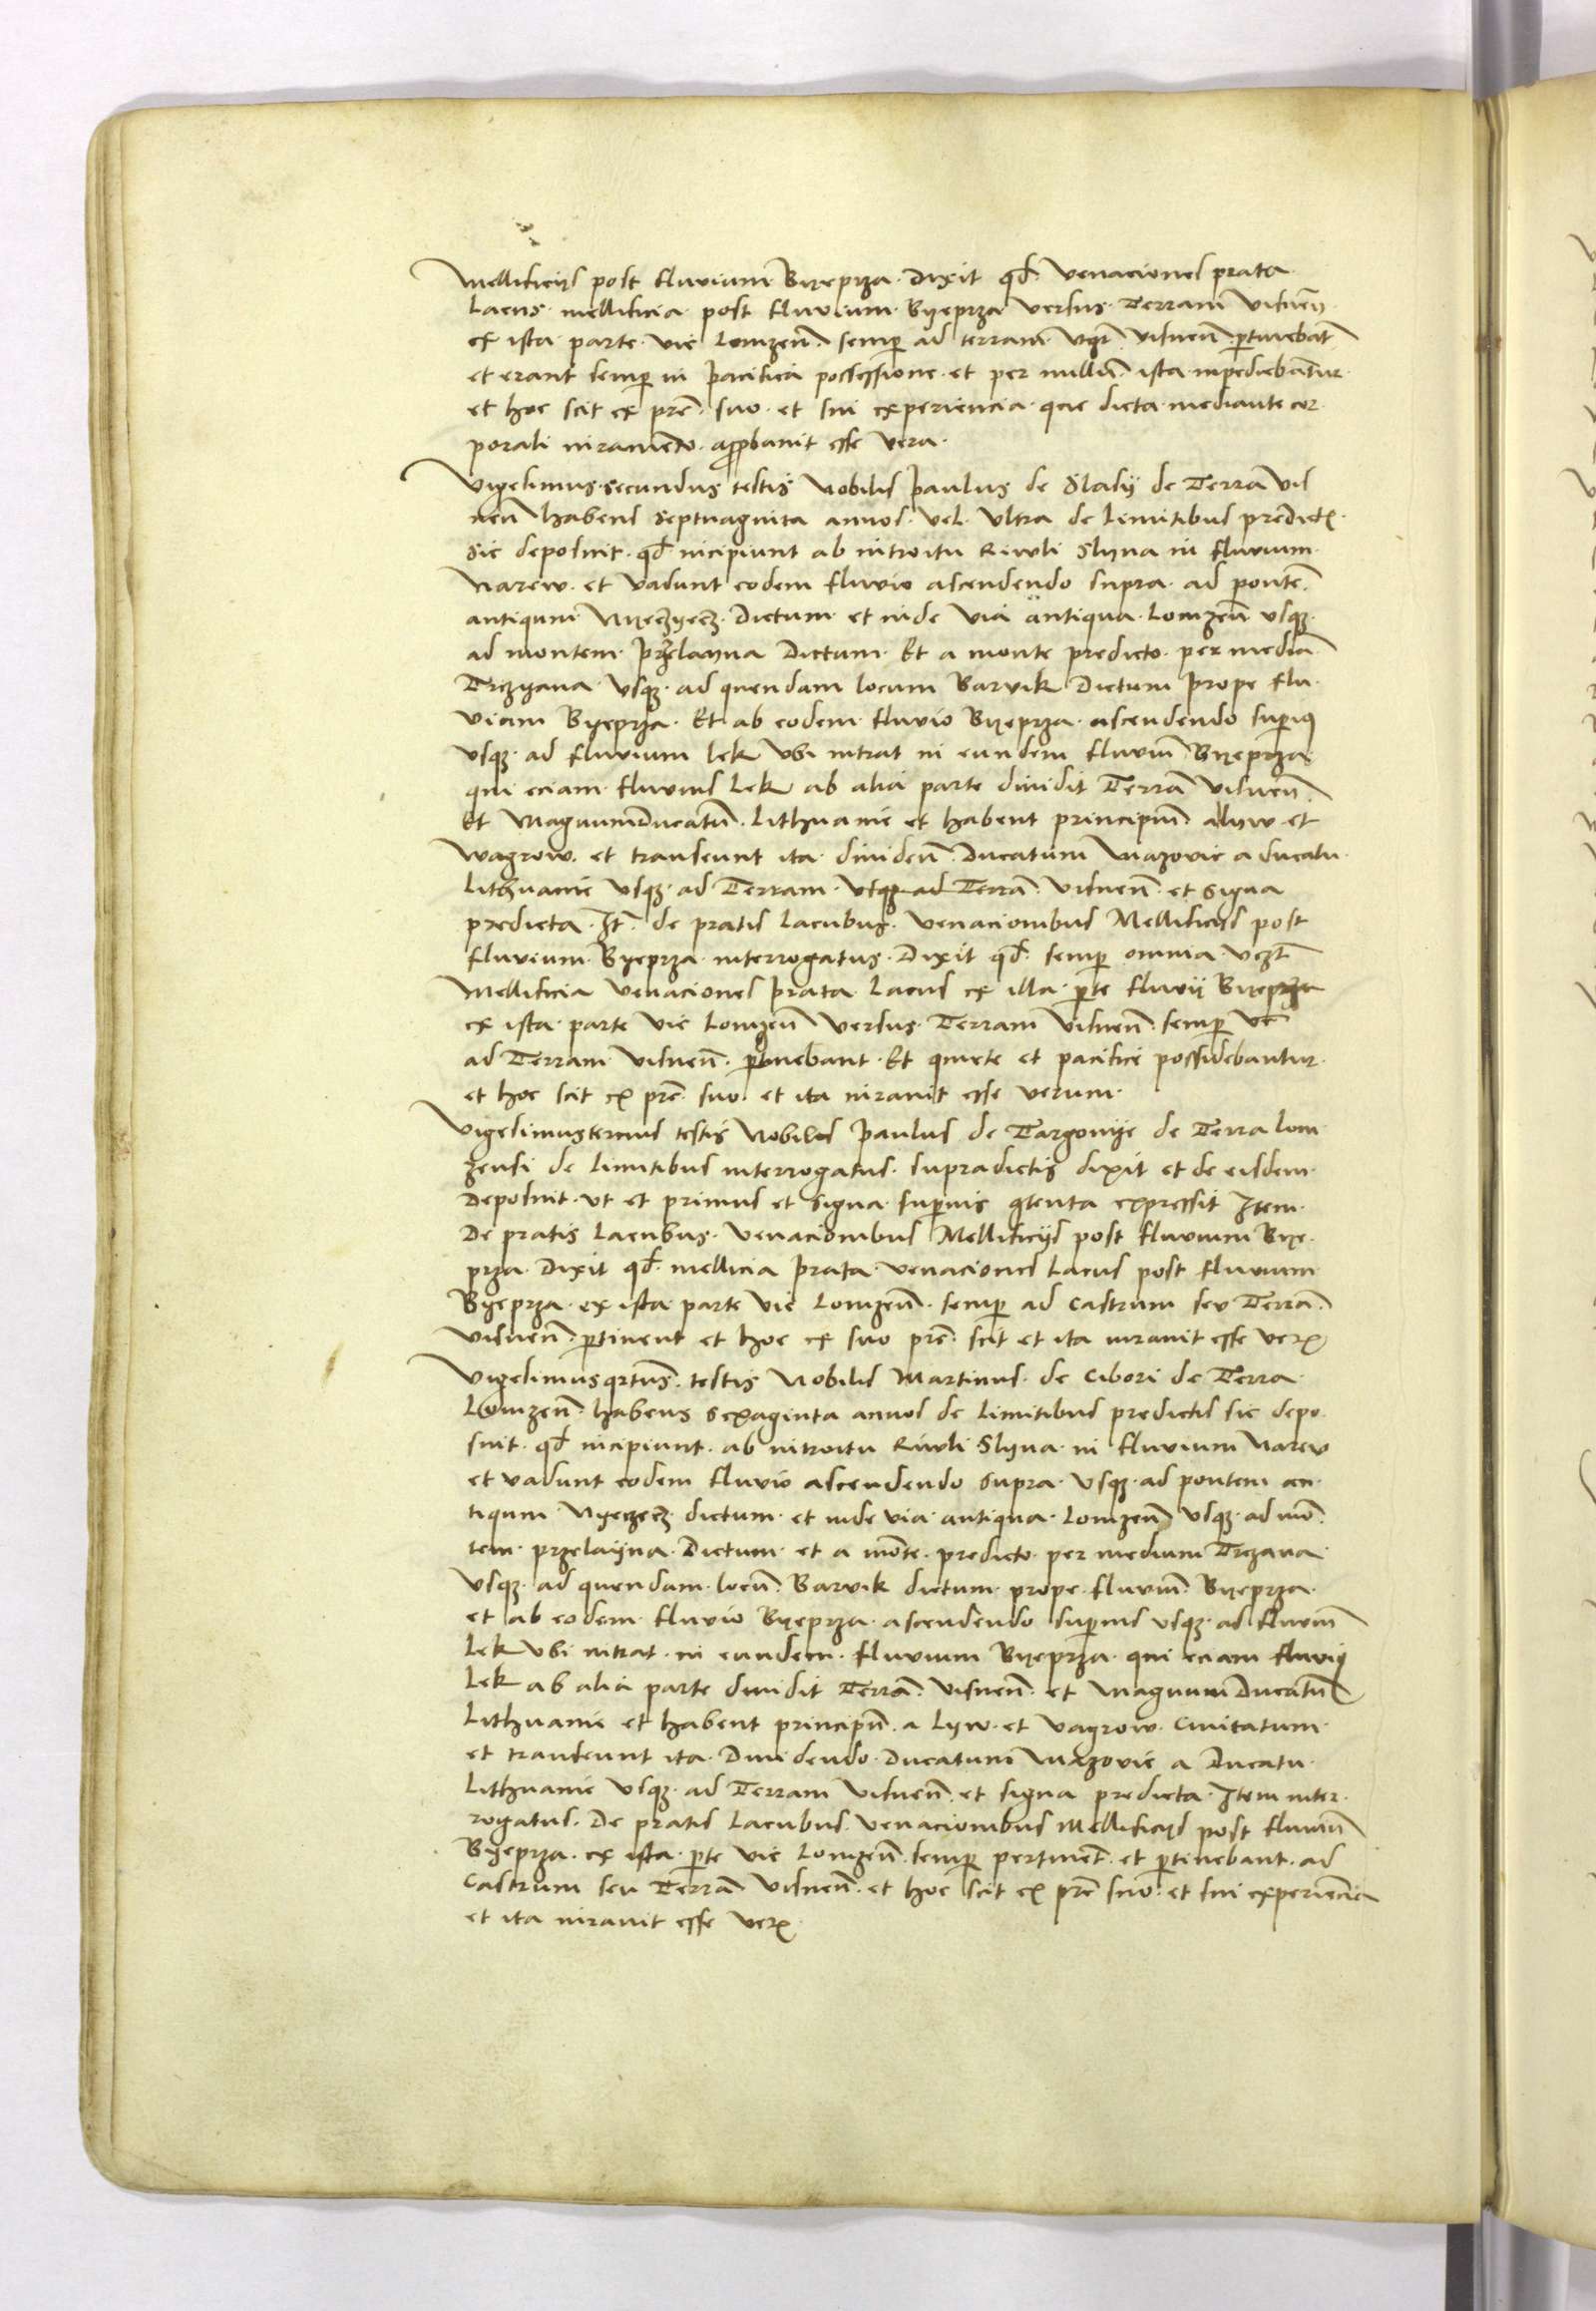 Mellificijs post fluvium Byeprza dixit qd venaciones prata
lacus mellificia post fluvium Byeprza versus Terram Visnen
ex ista parte vie Lomzen semper ad terram Visnen ptinebat
et erant semper in pacifica possessione et per nullum ista inpediebantur
et hoc scit ex pre suo et sui experiencia que dicta mediante cor
porali iuramento approbavit esse vera
Vigesimus secundus testis Nobilis Paulus de Slasy de Terra Vis
nen habens septuaginta annos vel ultra de limitibus predict
sic deposuit qd incipiunt ab introitu Rivuli Slyna in fluvium
Narew et vadunt eodem fluvio ascendendo supra ad pontem
antiqum Nyeczyecz dictum et inde via antiqua Lomzen usq
ad montem Przelayna dictum Et a monte predicto per media
Trczyana usq ad quendam locum Barvik dictum prope flu
viam Byeprza Et ab eodem fluvio Byeprza ascendendo superius
usq ad fluvium lek ubi intrat in eundem fluviu Byeprza
qui eciam fluvius Lek ab alia parte dividit Terra Visnen
Et Magnum Ducatu Lithuanie et habent principiu a Lyw et
Wagrow et transeunt ita dividen Ducatum Mazovie a ducatu
Lithuanie usq ad Terram usq ad Terra Visnen et signa
predicta It de pratis lacubus venacionibus Mellificijs post
fluvium Byeprza interrogatus Dixit qd semper omnia
Mellificia venaciones prata lacus ex illa parte fluvij Byeprza
ex ista parte vie Lomzen versus Terram Visnen semper
ad Terram Visnen ptinebant Et quiete et pacifice possidebantur
et hoc scit ex pre suo et ita iuravit esse verum
Vigesimustercius testis Nobilis Paulus de Targonye de Terra lom
zensi de limitibus interrogatus supradictis dixit et de eisdem
deposuit ut et primus et signa superius contenta expressit Item
De pratis lacubus venacionibus Mellificijs post fluvium Bye
prza Dixit qd mellicia prata venaciones lacus post fluvium
Byeprza ex ista parte vie Lomzen semper ad castrum seu Terra
Visnen ptinent et hoc ex suo pre scit et ita iuravit esse veru
Vigesimusqrtus testis Nobilis Martinus de Cibori de Terra
Lomzen habens sexaginta annos de limitibus predictis sic depo
suit qd incipiunt ab introitu Rivuli Slyna in fluvium Narew
et vadunt eodem fluvio ascendendo supra usq ad pontem an
tiqum Nyeczecz dictum et inde via antiqua Lomzen usq ad mo
tem przelayna dictum et a monte predicto per medium Trczana
usq ad quendam locu Barvik dictum prope fluviu Byeprza
et ab eodem fluvio Byeprza ascendendo superius usq ad fluviu
Lek ubi intrat in eundem fluvium Byeprza qui eciam fluvij
Lek ab alia parte dividit Terra Visnen et Magnum Ducatu
Lithuanie et habent principiu a Lyw et Vagrow Civitatum
et transeunt ita Dividendo Ducatum Mazovie a Ducatu
Lithuanie usq ad Terram Visnen et signa predicta Item inter
rogatus De pratis lacubus venacionibus Mellificijs post fluvium
Byeprza ex ista parte vie Lomzen semper pertinet et ptinebant ad
castrum seu Terra Visnen et hoc scit ex pre suo et sui experiencia
et ita iuravit esse veru